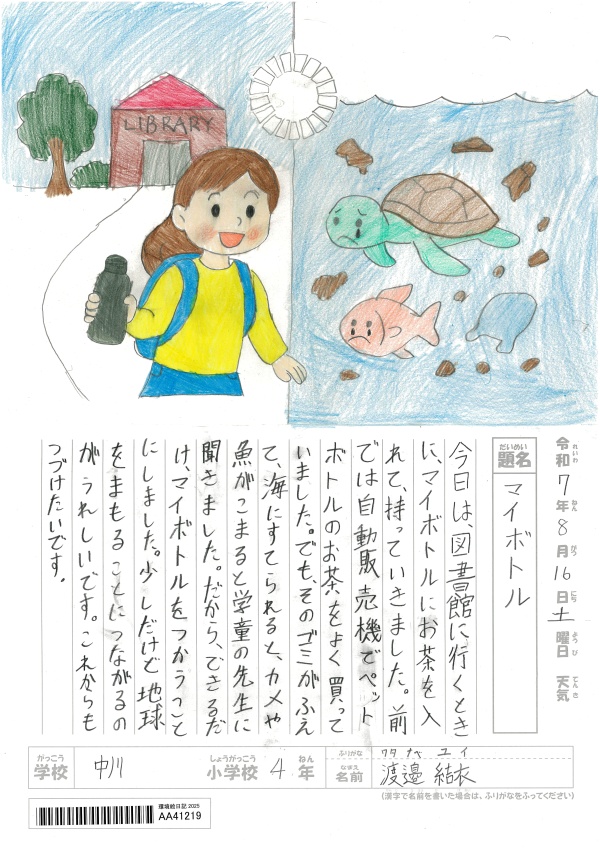 LIBRARY
令和7年8月16日土曜日 天気
れいわ ねん がつ にち ようび てんき
だいめい
題名 マイボトル
今日は、図書館に行くとき
に、マイボトルにお茶を入
れて、持っていきました。前
では自動販売機でペット
ボトルのお茶をよく買って
いました。でも、そのゴミがふえ
て、海にすてられると、カメや
魚がこまると学童の先生に
聞きました。だから、できるだ
け、マイボトルをつかうこと
にしました。少しだけど地球
をまもることにつながるの
がうれしいです。これからも
つづけたいです。
がっこう しょうがっこう ねん
学校 中川 小学校 4年
ふりがな ワタナベ ユイ
なまえ
名前 渡邉 結衣
(漢字で名前を書いた場合は、ふりがなをふってください)
環境絵日記 2025
AA41219